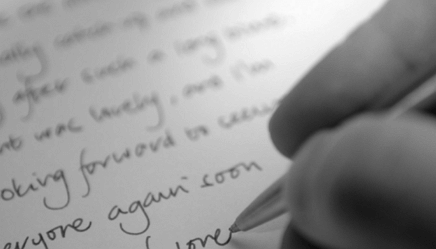 really catch up and
after such a long time.
was lovely, and I'm
oking forward to seein
eryone again soon
love